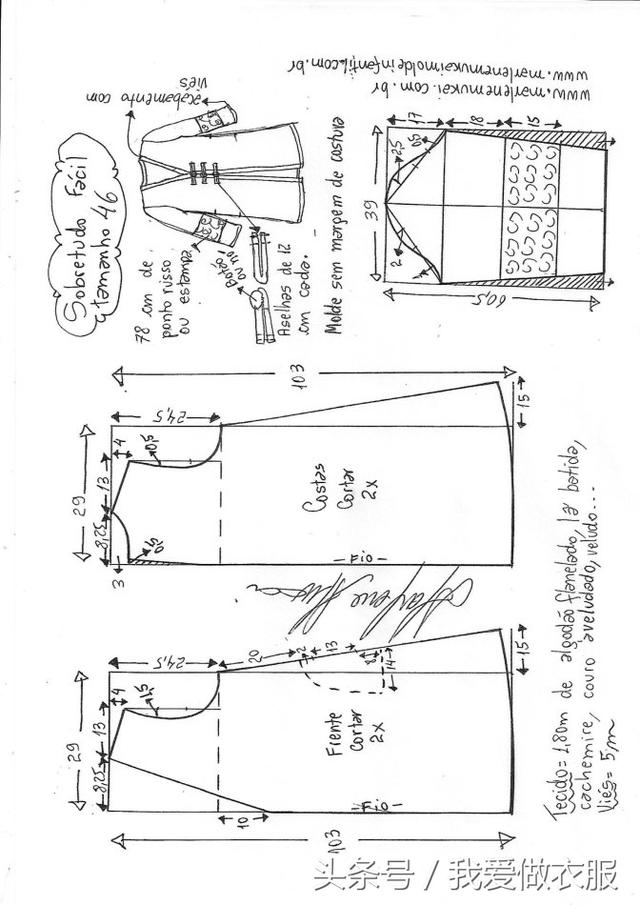 Sobretudo Fácil
tamanho 46
acabamento com
viés
78 cm de
ponto russo
ou estampa
Botão
ou nó
Aselhas de 12
cm cada.
Molde sem margem de costura
www.marlenemukai.com.br
www.marlenemukaimoldeinfantil.com.br
17
18
15
25
0,5
39
2
1
60,5
103
24,5
15
29
4
0,5
13
8,25
3
Costas
Cortar
2x
Fio
24,5
20
2
13
8
14
15
29
4
1,5
13
8,25
Frente
Cortar
2x
Fio
10
103
Tecido = 1,80m de algodão flanelado, lã batida,
cachemire, couro aveludado, veludo...
Viés = 5m
头条号 / 我爱做衣服